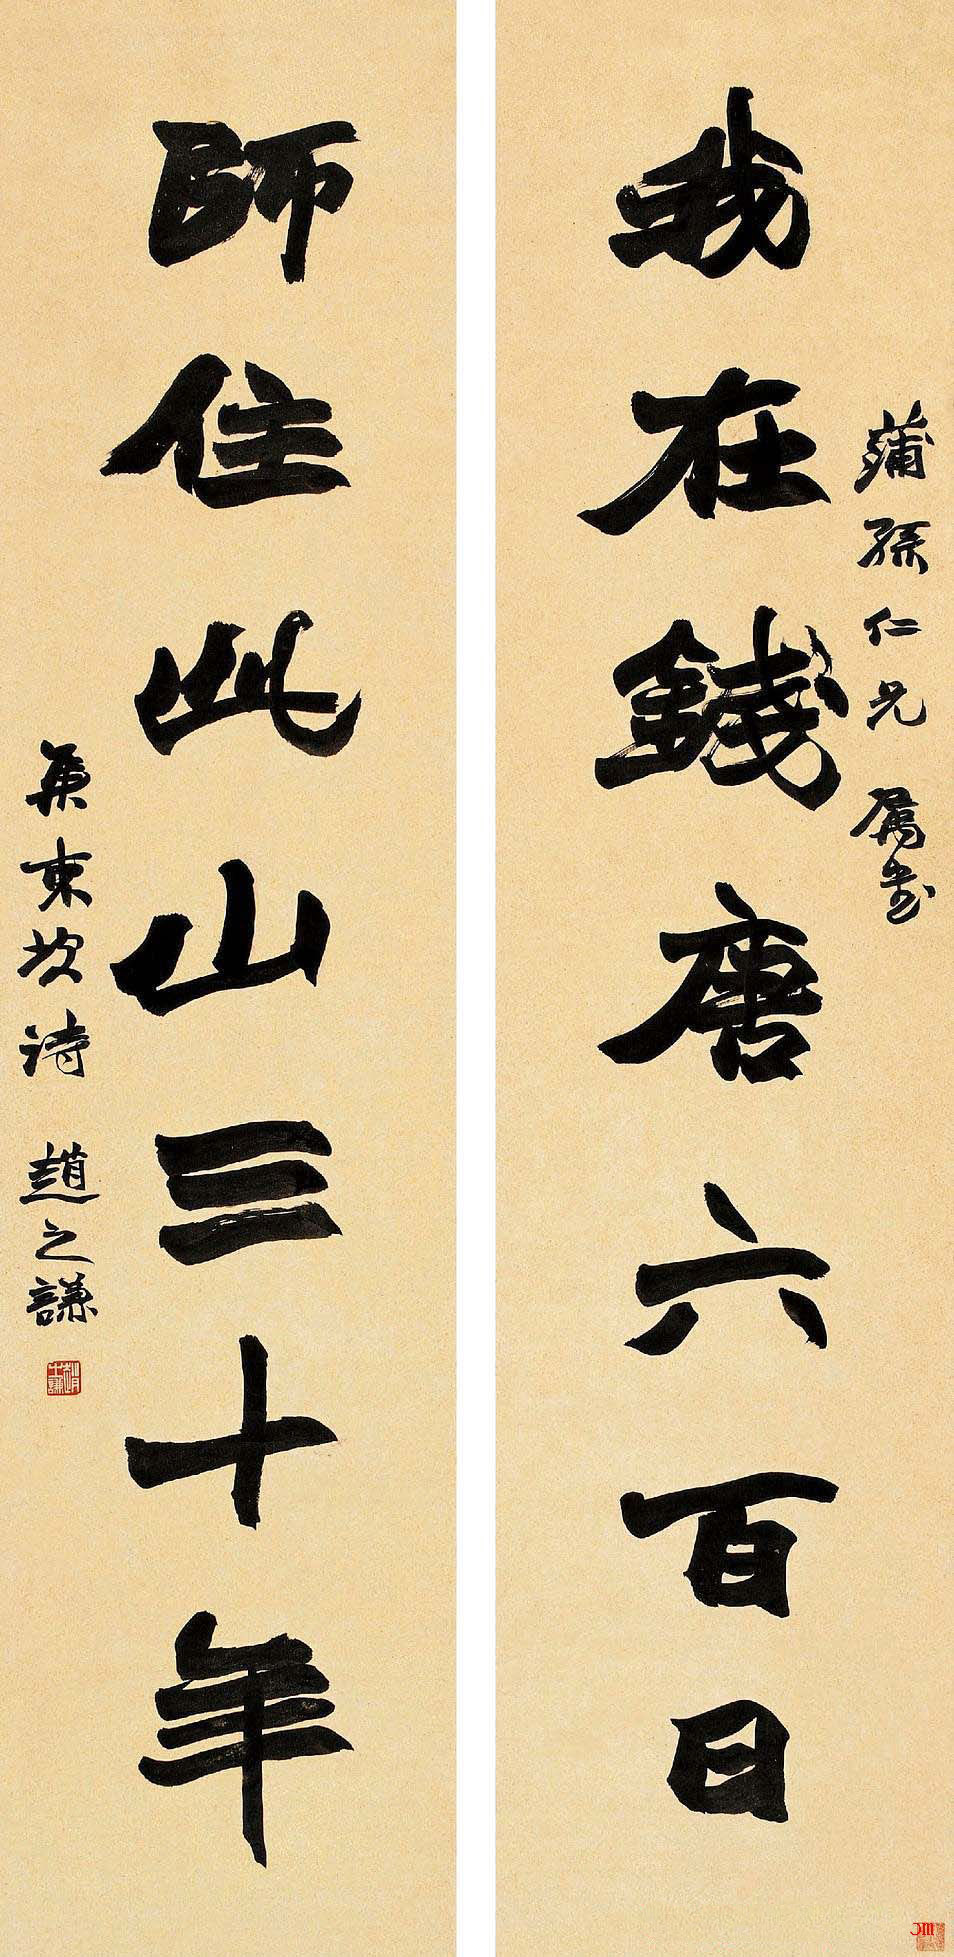 蒲孫仁兄 屬書
我在錢唐六百日
師住此山三十年
集東坡詩 趙之謙
趙之謙